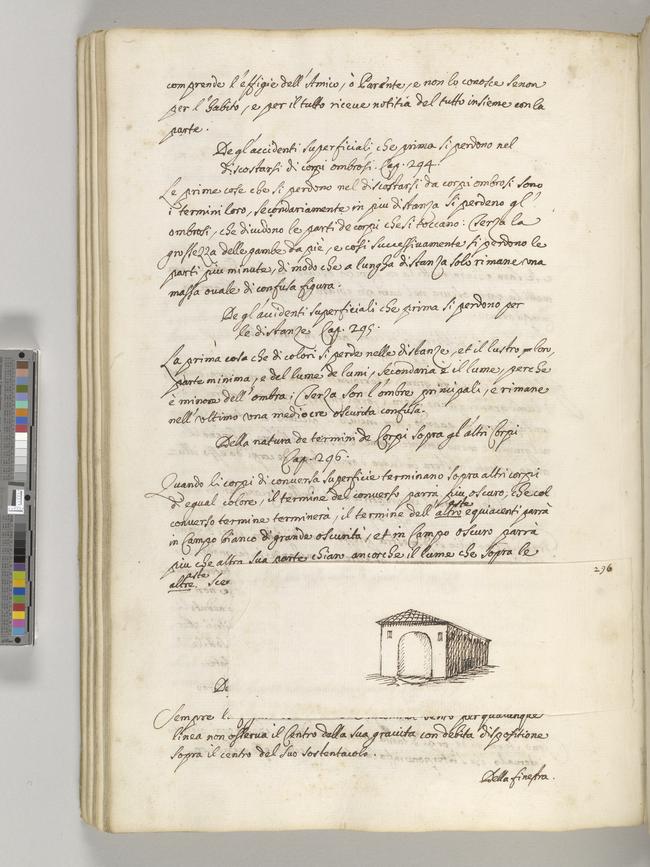 comprende l'effigie dell'Amico, ò Parente, e non lo conosce senon
per l'habito, e per il tutto riceve notitia del tutto insieme con la
parte.
De gl'accidenti superficiali che prima si perdono nel
discostarsi di corpi ombrosi. Cap. 294.
Le prime cose che si perdono nel discostarsi da corpi ombrosi sono
i termini loro, secondariamente in piu distanza si perdeno gl'
ombrosi, che dividono le parti de corpi che si toccano: Terza la
grossezza delle gambe da piè, e cosi successivamente si perdono le
parti piu minute, di modo che a lungha distanza solo rimane una
massa ovale di confusa figura.
De gl'accidenti superficiali che prima si perdono per
le distanze Cap. 295.
La prima cosa che di colori si perde nelle distanze, et il lustro loro,
parte minima, e del lume de lumi, secondaria è il lume, perche
è minore dell'ombra; Terza son l'ombre principali, e rimane
nell'ultimo una mediocre oscurità confusa.
Della natura de termini de Corpi sopra gl'altri Corpi
Cap. 296.
Quando li corpi di conversa superficie terminano sopra altri corpi
di equal colore, il termine del converso parra piu oscuro, che col
converso termine terminerà, il termine dell' altro aste equiacenti parrà
in Campo bianco di grande oscurità, et in Campo oscuro parrà
piu che altra sua parte chiaro ancorche il lume che sopra le
altre. aste sce
296
De
Sempre
linea non osserva il Centro della sua gravita con debita dispositione
sopra il centro del suo sostentacolo.
Della finestra.